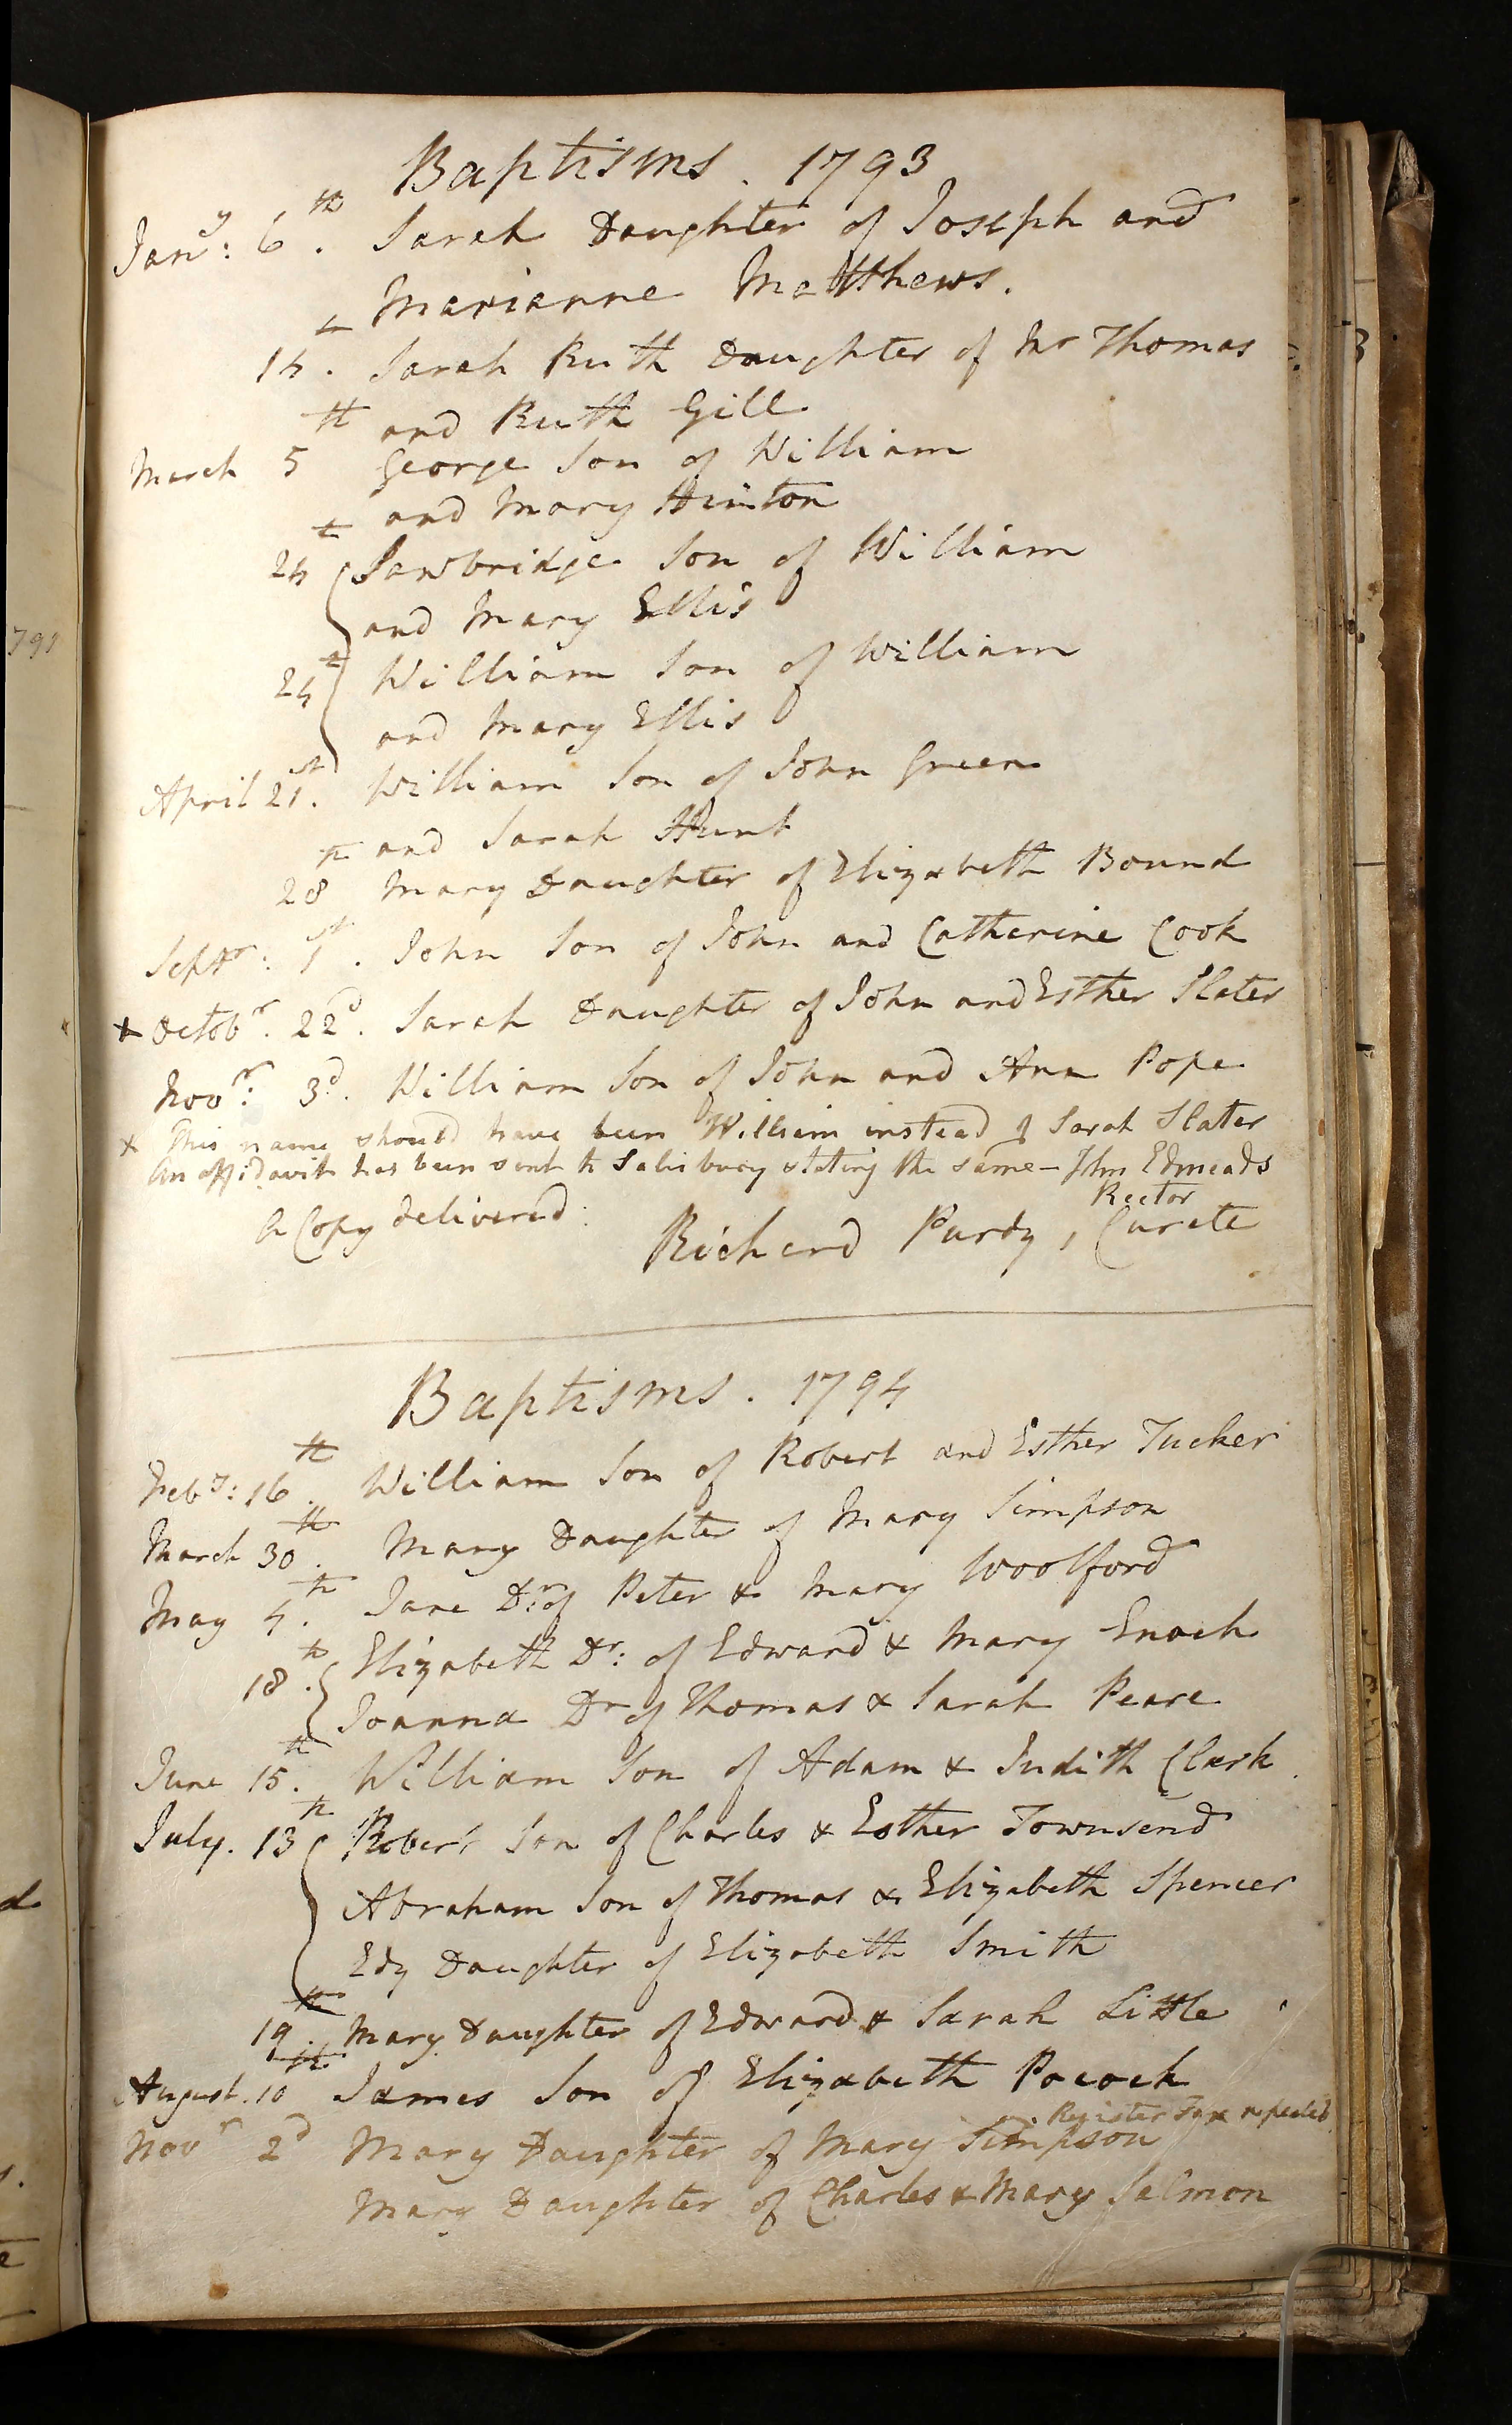 Baptisms. 1793
Jany: 6th. Sarah Daughter of Joseph and
Marianne Matthews.
14th. Sarah Ruth Daughter of Mr Thomas
and Ruth Gill
March 5th George Son of William
and Mary Hinton
24th Sawbridge Son of William
and Mary Ellis
24th William Son of William
and Mary Ellis
April 21st. William Son of John Green
and Sarah Hunt
28th Mary Daughter of Elizabeth Bound
Septr: 1st. John Son of John and Catherine Cook
x Octobr. 22d. Sarah Daughter of John and Esther Slater
Novr: 3d. William Son of John and Ann Pope
x This name should have been William instead of Sarah Slater
An affidavit has been sent to Salisbury stating the same - John Edmeads
Rector
A Copy delivered:
Richard Purdy, Curate
Baptisms. 1794
Feby: 16th. William Son of Robert and Esther Tucker
March 30th. Mary Daughter of Mary Simpson
May 4th. Jane Dr: of Peter & Mary Woolford
18th. Elizabeth Dr: of Edward & Mary Enoch
Joanna Dr of Thomas & Sarah Pearc
June 15th. William Son of Adam & Judith Clark.
July. 13th Robert Son of Charles & Esther Townsend
Abraham Son of Thomas & Elizabeth Spencer
Edy Daughter of Elizabeth Smith
19th. Mary Daughter of Edward & Sarah Little
August. 10th James Son of Elizabeth Pocock
Register Tax repealed
Novr 2d Mary Daughter of Mary Simpson
Mary Daughter of Charles & Mary Salmon